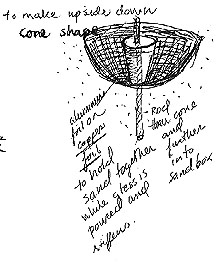 to make upside down
cone shape
aluminum
foil or
copper
foil
to hold
sand together
while glass is
poured and
stiffens.
- Rod
thru cone
and
further
into
sand box